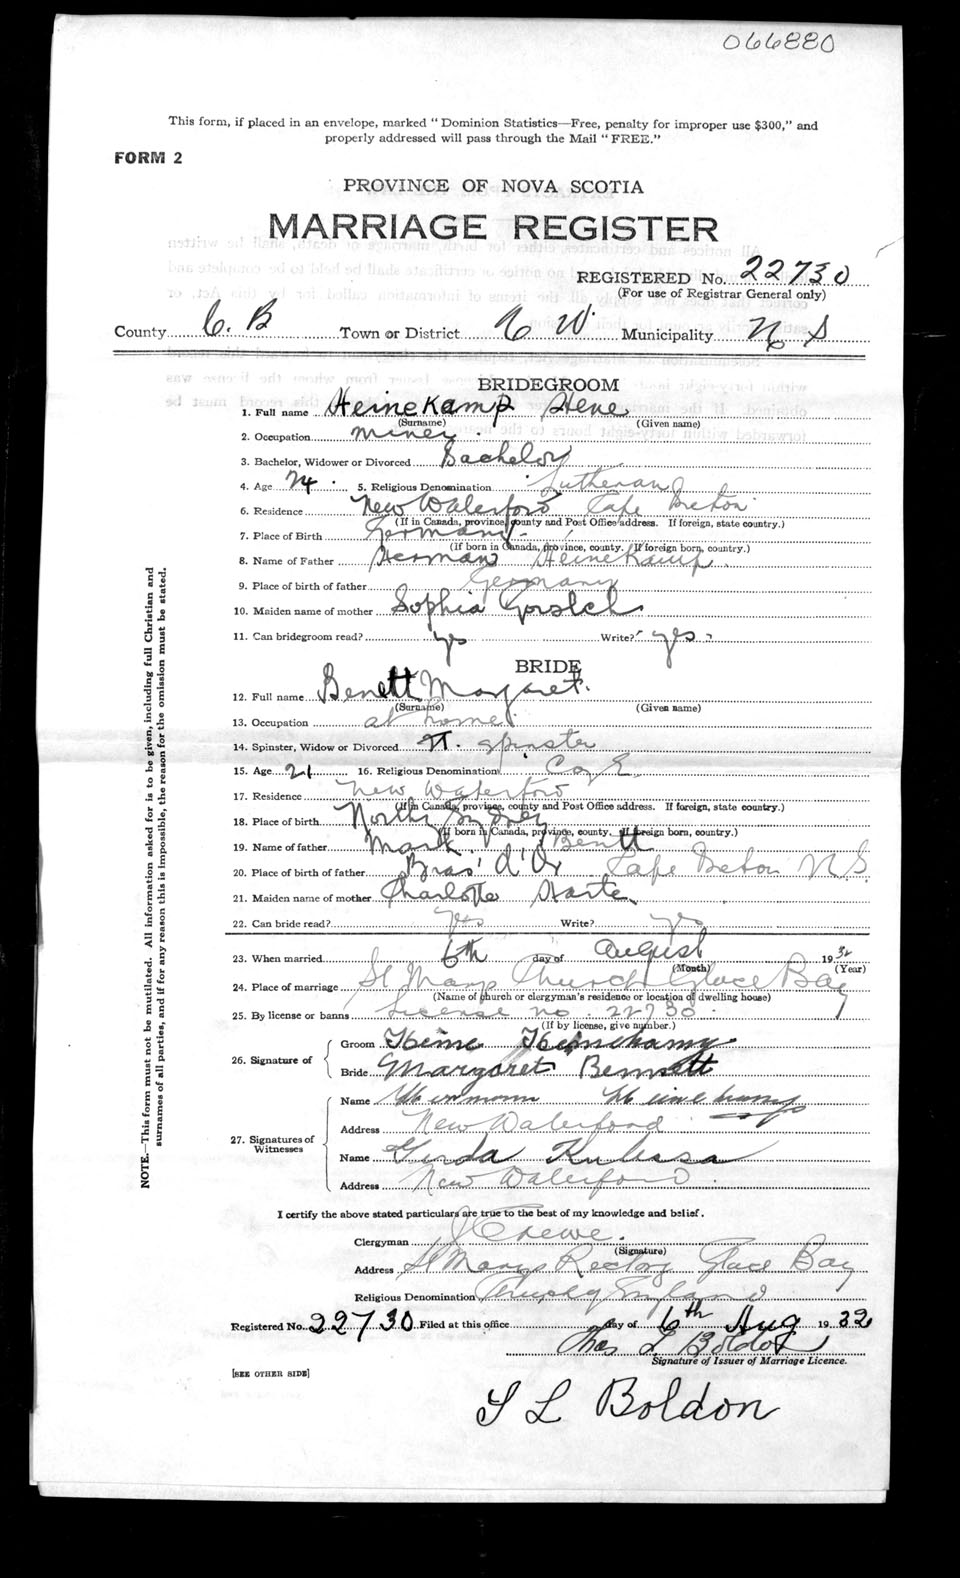 066880
This form, if placed in an envelope, marked "Dominion Statistics—Free, penalty for improper use $300," and
properly addressed will pass through the Mail "FREE."
FORM 2
PROVINCE OF NOVA SCOTIA
MARRIAGE REGISTER
REGISTERED No. 22730
(For use of Registrar General only)
County C. B Town or District N W Municipality N S
BRIDEGROOM
1. Full name HeineKamp Hene
(Surname) (Given name)
2. Occupation miner
3. Bachelor, Widower or Divorced Bachelor
4. Age 24 5. Religious Denomination Lutheran
6. Residence New Waterford Cape Breton
(If in Canada, province, county and Post Office address. If foreign, state country.)
7. Place of Birth Germany
(If born in Canada, province, county. If foreign born, country.)
8. Name of Father Herman HeineKamp
9. Place of birth of father Germany
10. Maiden name of mother Sophia
11. Can bridegroom read? yes Write? yes
BRIDE
12. Full name Benett Margaret
(Surname) (Given name)
13. Occupation at home
14. Spinster, Widow or Divorced spinster
15. Age 21 16. Religious Denomination C of E
17. Residence New Waterford
(If in Canada, province, county and Post Office address. If foreign, state country.)
18. Place of birth North Sydney
(If born in Canada, province, county. If foreign born, country.)
19. Name of father Mark Benett
20. Place of birth of father Bras d'Or Cape Breton N.S.
21. Maiden name of mother Charlotte
22. Can bride read? yes Write? yes
23. When married 6th day of August 1932
(Month) (Year)
24. Place of marriage St Marys Church Glace Bay
(Name of church or clergyman's residence or location of dwelling house)
25. By license or banns License no. 22730
(If by license, give number.)
26. Signature of
Groom Heine Heinekamp
Bride Margaret Bennett
27. Signatures of Witnesses
Name Hermann Heinekamp
Address New Waterford
Name Gerda
Address New Waterford
I certify the above stated particulars are true to the best of my knowledge and belief.
Clergyman J Crewe.
(Signature)
Address St Marys Rectory Glace Bay
Religious Denomination Church of England
Registered No. 22730 Filed at this office day of 6th Aug 1932
Thos L Boldon
Signature of Issuer of Marriage Licence.
[SEE OTHER SIDE]
T L Boldon
NOTE.—This form must not be mutilated. All information asked for is to be given, including full Christian and
surnames of all parties, and if for any reason this is impossible, the reason for the omission must be stated.